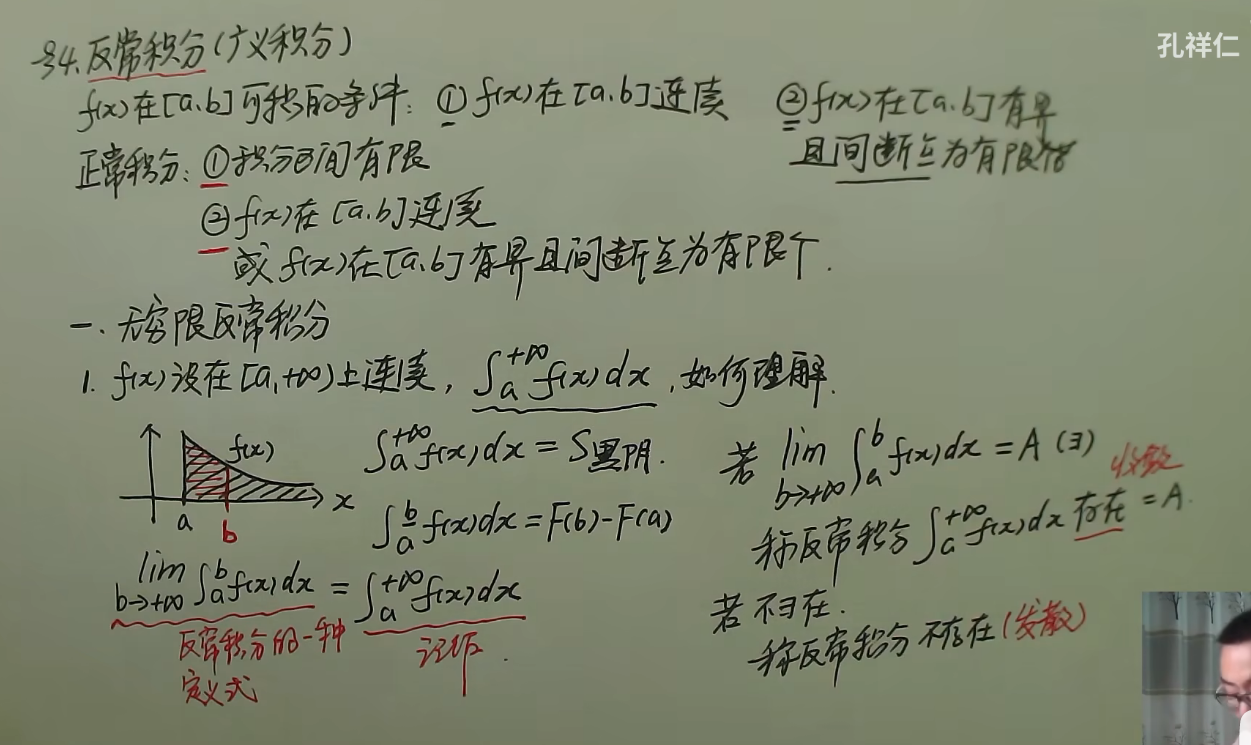 孔祥仁
§4. 反常积分(广义积分)
f(x)在[a,b]可积的条件: ① f(x)在[a,b]连续 ② f(x)在[a,b]有界
且间断点为有限个
正常积分: ①积分区间有限
② f(x)在[a,b]连续
或 f(x)在[a,b]有界且间断点为有限个.
一. 无穷限反常积分
1. f(x)设在[a,+∞)上连续, ∫_a^{+∞} f(x)dx, 如何理解.
f(x)
x
a
b
∫_a^{+∞} f(x)dx = S黑阴.
∫_a^b f(x)dx = F(b)-F(a)
lim_{b→+∞} ∫_a^b f(x)dx = ∫_a^{+∞} f(x)dx
反常积分的一种
定义式
记作.
若 lim_{b→+∞} ∫_a^b f(x)dx = A (∃)
收敛
称反常积分 ∫_a^{+∞} f(x)dx 存在 = A.
若不∃在.
称反常积分不存在(发散)